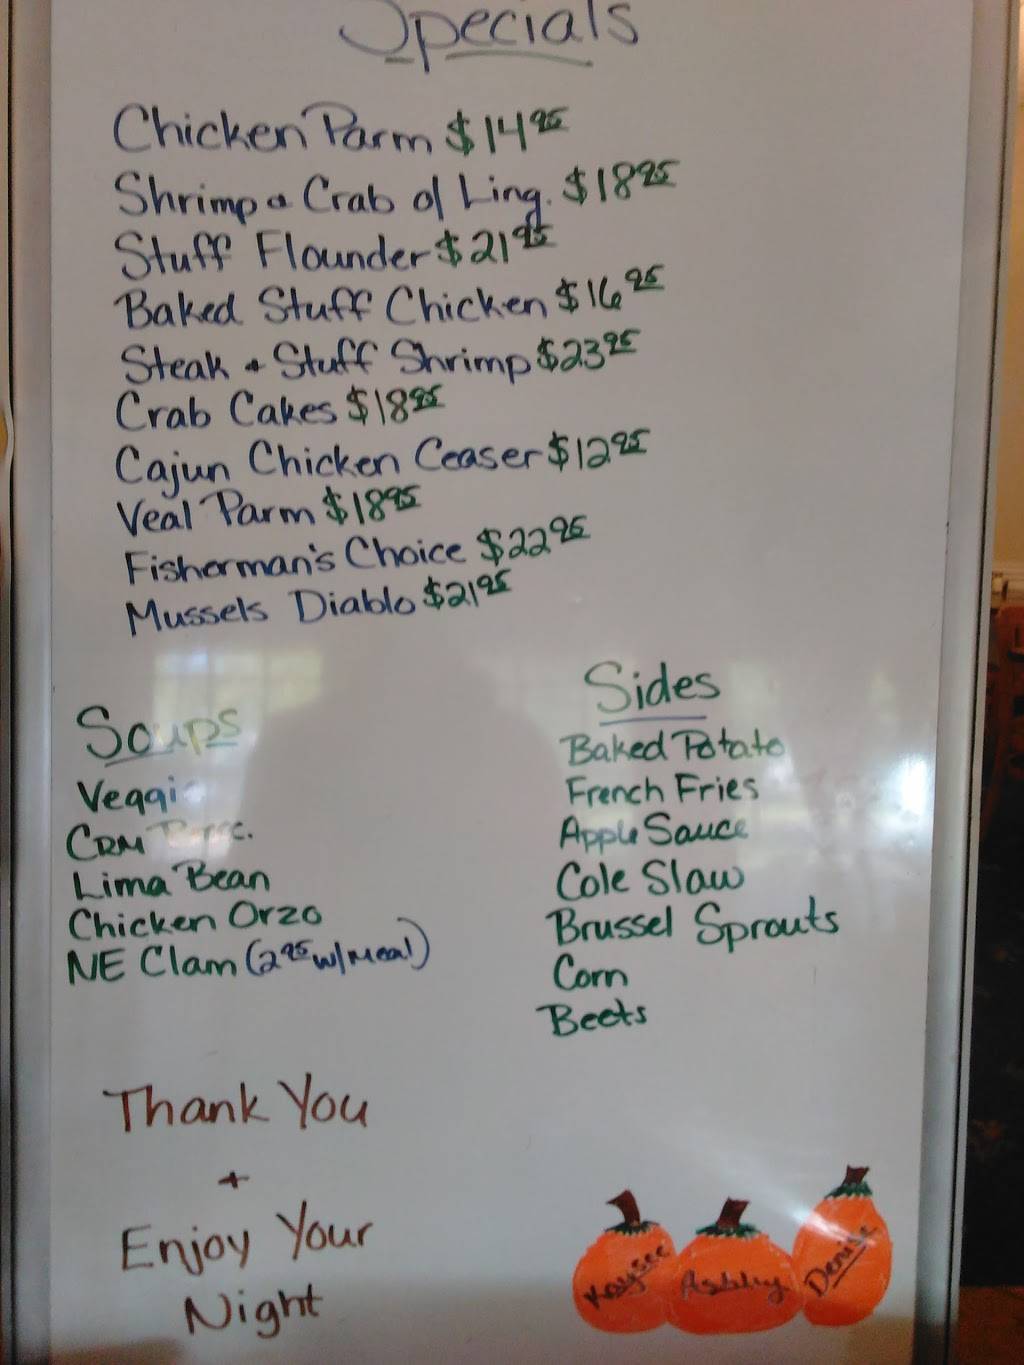 Specials
Chicken Parm $14.95
Shrimp & Crab o/ Ling. $18.95
Stuff Flounder $21.95
Baked Stuff Chicken $16.95
Steak + Stuff Shrimp $23.95
Crab Cakes $18.95
Cajun Chicken Ceaser $12.95
Veal Parm $18.95
Fisherman's Choice $22.95
Mussels Diablo $21.95
Soups
Veggi
CRM
Lima Bean
Chicken Orzo
NE Clam (2.95 w/Meal)
Sides
Baked Potato
French Fries
Apple Sauce
Cole Slaw
Brussel Sprouts
Corn
Beets
Thank You
+
Enjoy Your
Night
Kaysee
Ashley
Denise